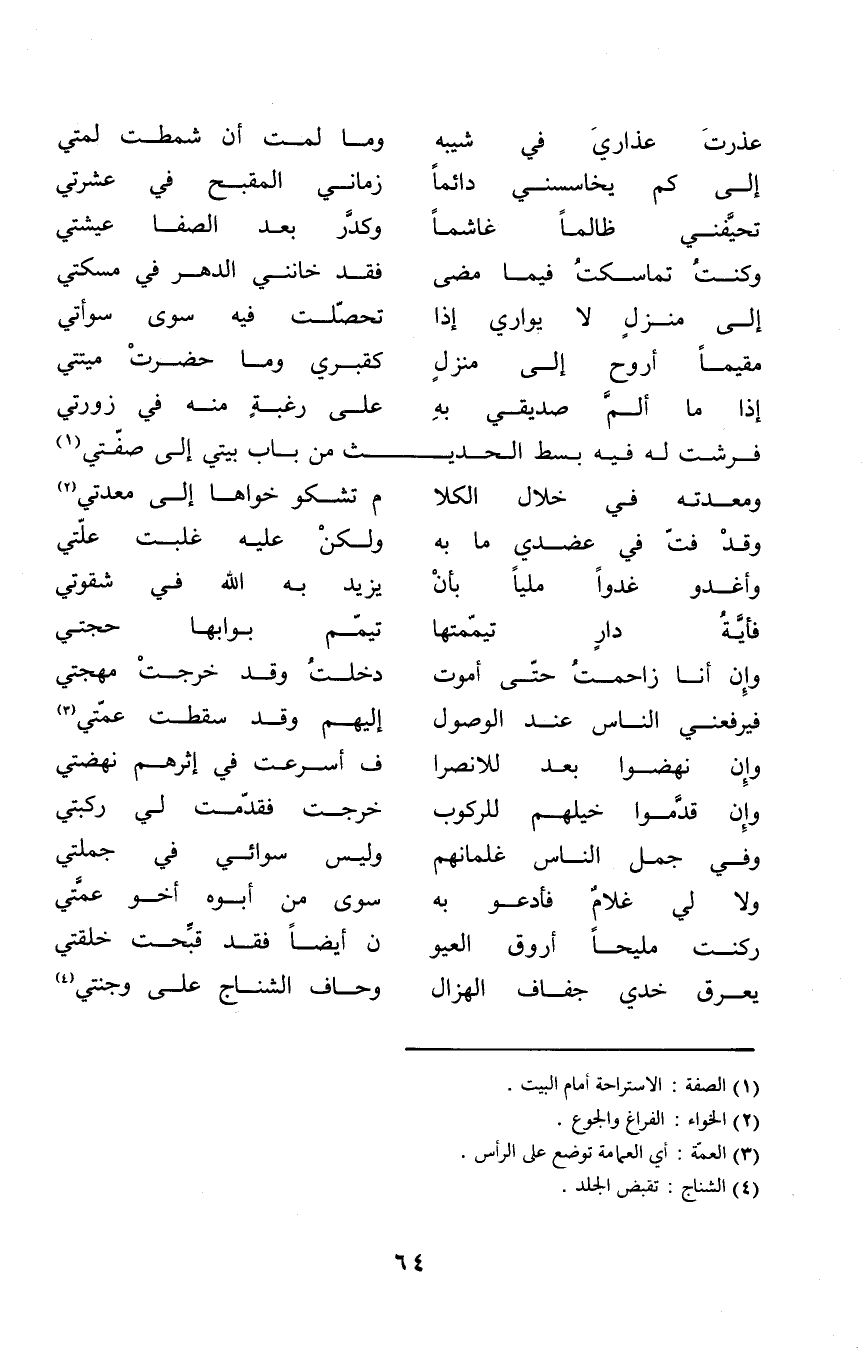 عذرتَ عذاريَ في شيبه وما لمت أن شمطت لمتي
إلى كم يخاسسني دائماً زماني المقبح في عشرتي
تحيَّفني ظالماً غاشماً وكدَّر بعد الصفا عيشتي
وكنتُ تماسكتُ فيما مضى فقد خانني الدهر في مسكتي
إلى منزلٍ لا يواري إذا تحصّلت فيه سوى سوأتي
مقيماً أروح إلى منزلٍ كقبري وما حضرتْ ميتتي
إذا ما ألمَّ صديقي بهِ على رغبةٍ منه في زورتي
فرشت له فيه بسط الحديث من باب بيتي إلى صفّتي(١)
ومعدته في خلال الكلا م تشكو خواها إلى معدتي(٢)
وقدْ فتّ في عضدي ما به ولكنْ عليه غلبت علّتي
وأغدو غدواً ملياً بأنْ يزيد به الله في شقوتي
فأيَّةُ دارٍ تيمّمتها تيمّم بوابها حجتي
وإن أنا زاحمتُ حتّى أموت دخلتُ وقد خرجتْ مهجتي
فيرفعني الناس عند الوصول إليهم وقد سقطت عمّتي(٣)
وإن نهضوا بعد للانصرا ف أسرعت في إثرهم نهضتي
وإن قدَّموا خيلهم للركوب خرجت فقدّمت لي ركبتي
وفي جمل الناس غلمانهم وليس سوائي في جملتي
ولا لي غلامٌ فأدعو به سوى من أبوه أخو عمَّتي
ركنت مليحاً أروق العيو ن أيضاً فقد قبِّحت خلقتي
يعرق خدي جفاف الهزال وحاف الشناج على وجنتي(٤)
(١) الصفة : الاستراحة أمام البيت .
(٢) الخواء : الفراغ والجوع .
(٣) العمّة : أي العمامة توضع على الرأس .
(٤) الشناج : تقبض الجلد .
٦٤